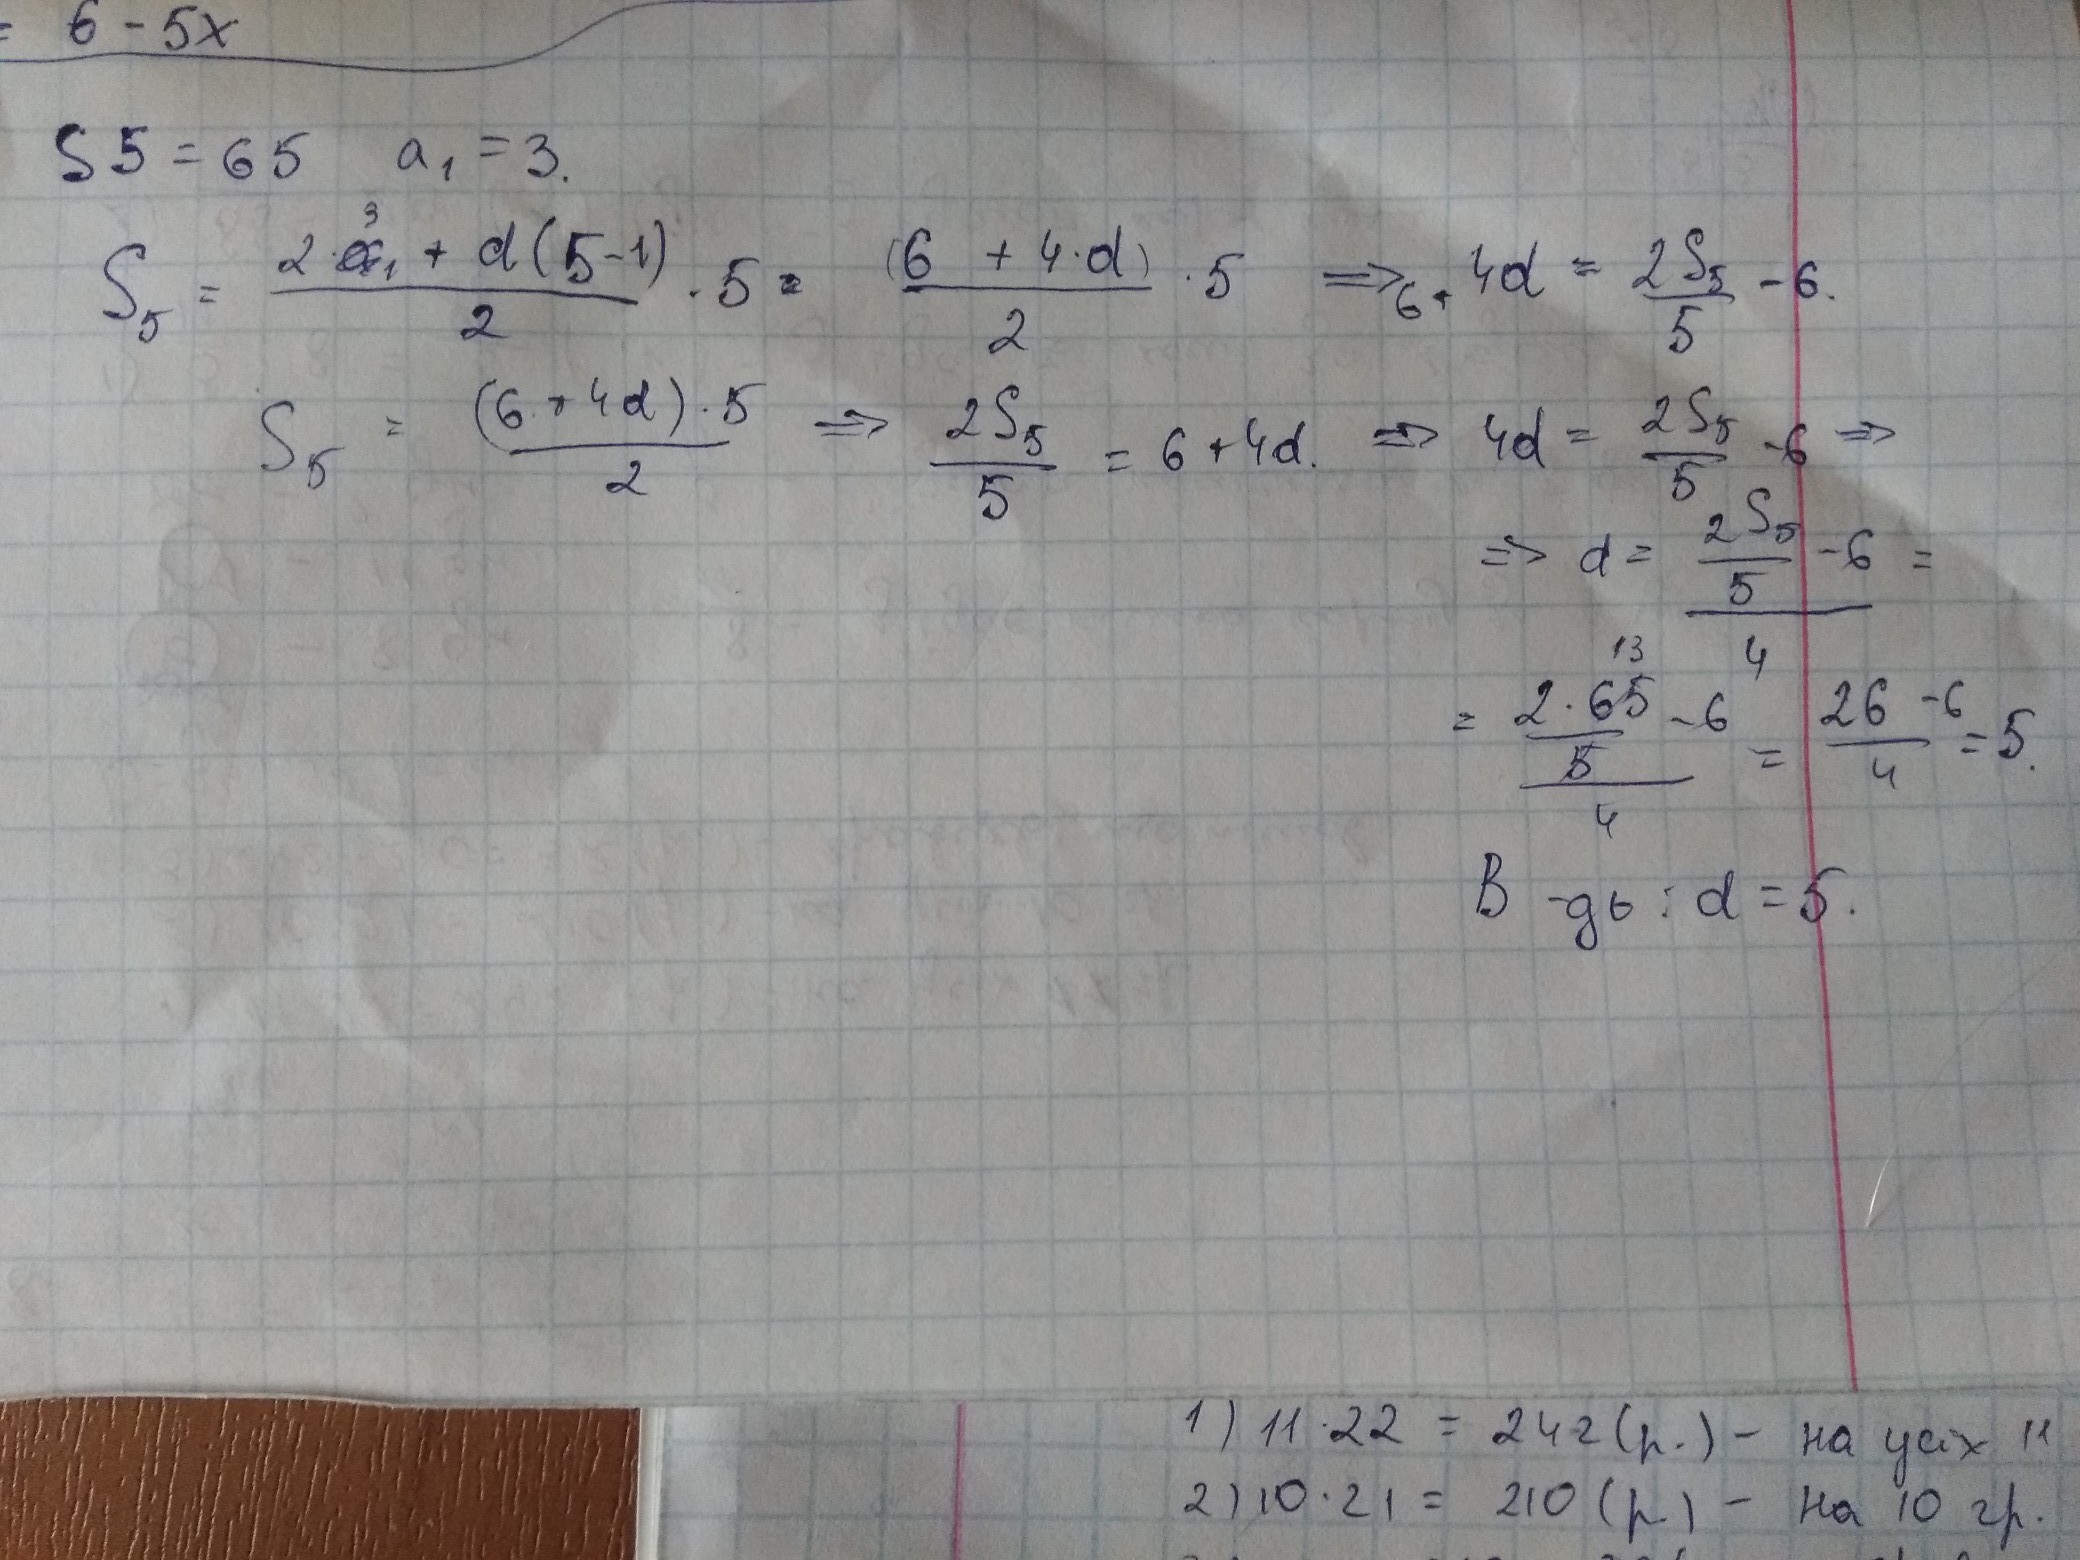 = 6 - 5x
S5 = 65 a₁ = 3.
S₅ = (2·a₁ + d(5-1))/2 · 5 = (6 + 4·d)/2 · 5 ⇒ 6+ 4d = 2S₅/5 - 6.
S₅ = (6 + 4d)·5/2 ⇒ 2S₅/5 = 6 + 4d. ⇒ 4d = 2S₅/5 - 6 ⇒
⇒ d = (2S₅/5 - 6)/4 =
= (2·65/5 - 6)/4 = (26 - 6)/4 = 5.
В-дь: d = 5.
1) 11·22 = 242 (р.) - на усіх 11
2) 10·21 = 210 (р.) - на 10 гр.